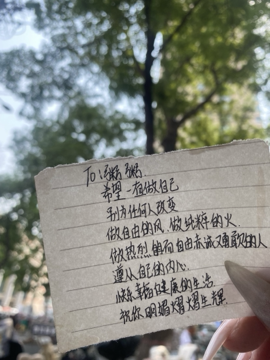 To
希望一直做自己
别为任何人改变
做自由的风,做纯粹的火
做热烈的而自由赤诚又勇敢的人
遵从自己的内心
快乐幸福健康的生活
祝你明媚熠熠生辉